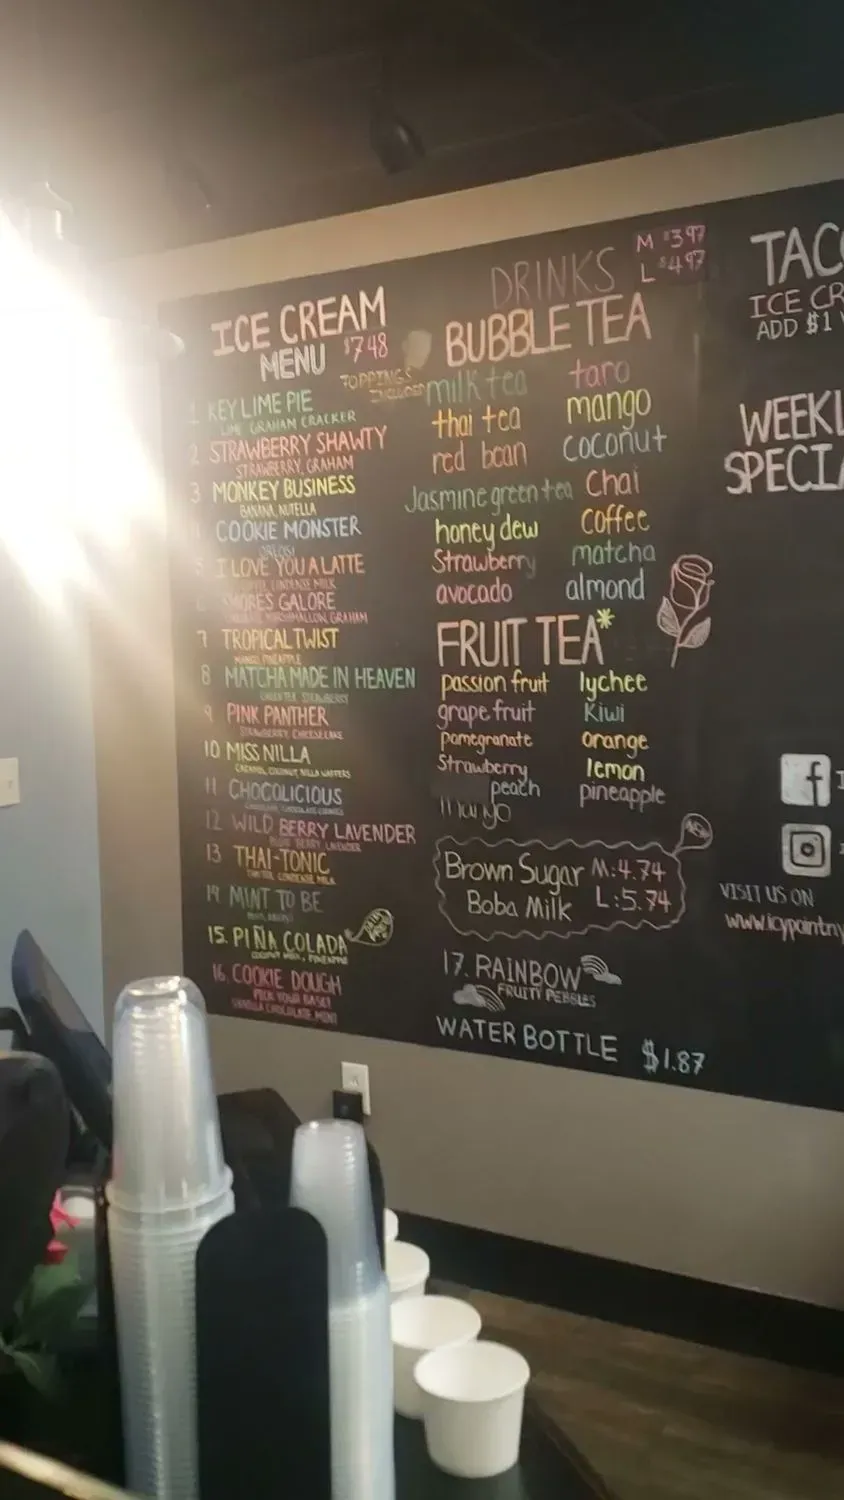 ICE CREAM
MENU $7.48
TOPPINGS
INCLUDED
1 KEY LIME PIE
LIME GRAHAM CRACKER
2 STRAWBERRY SHAWTY
STRAWBERRY, GRAHAM
3 MONKEY BUSINESS
BANANA, NUTELLA
COOKIE MONSTER
OREOS!
5 I LOVE YOU A LATTE
CONDENSE MILK
SMORES GALORE
MARSHMALLOW, GRAHAM
7 TROPICAL TWIST
MANGO, PINEAPPLE
8 MATCHA MADE IN HEAVEN
GREEN TEA, STRAWBERRY
9 PINK PANTHER
STRAWBERRY, CHEESECAKE
10 MISS NILLA
CARAMEL, COCONUT, NILLA WAFFERS
11 CHOCOLICIOUS
12 WILD BERRY LAVENDER
13 THAI-TONIC
THAI TEA, CONDENSE MILK
14 MINT TO BE
15. PIÑA COLADA
COCONUT MILK, PINEAPPLE
16. COOKIE DOUGH
PICK YOUR BASE!
VANILLA, CHOCOLATE, MINT
DRINKS M $3.97
L $4.97
BUBBLE TEA
milk tea taro
thai tea mango
red bean coconut
Jasmine green tea Chai
honey dew Coffee
Strawberry matcha
avocado almond
FRUIT TEA*
passion fruit lychee
grapefruit Kiwi
pomegranate orange
Strawberry lemon
peach pineapple
mango
NEW
Brown Sugar M:4.74
Boba Milk L:5.74
17. RAINBOW
FRUITY PEBBLES
WATER BOTTLE $1.87
TACO
ICE CR
ADD $1
WEEKL
SPECIA
f
VISIT US ON
www.icypointny